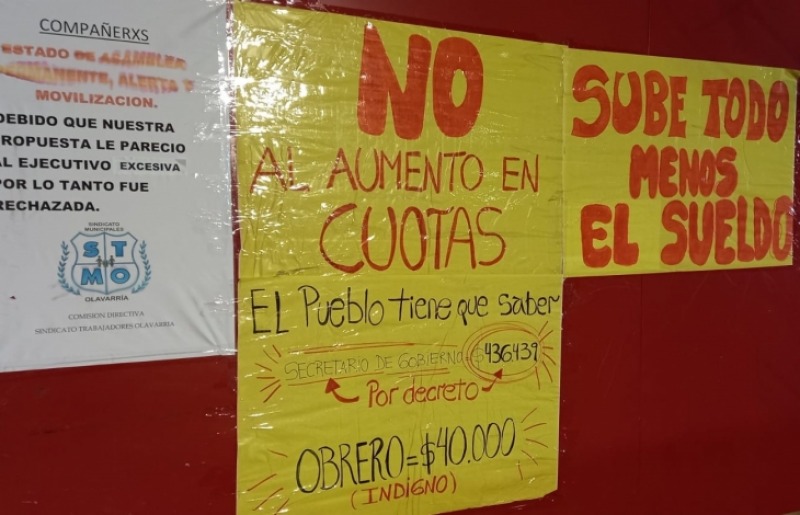 COMPAÑERXS
ESTADO DE ASAMBLEA
PERMANENTE, ALERTA Y
MOVILIZACION.
DEBIDO QUE NUESTRA
PROPUESTA LE PARECIO
AL EJECUTIVO EXCESIVA
POR LO TANTO FUE
RECHAZADA.
SINDICATO
MUNICIPALES
STMO
OLAVARRÍA
COMISION DIRECTIVA
SINDICATO TRABAJADORES OLAVARRIA
NO
AL AUMENTO EN
CUOTAS
EL Pueblo tiene que saber
SECRETARIO DE GOBIERNO $436.439
Por decreto
OBRERO=$40.000
(INDIGNO)
SUBE TODO
MENOS
EL SUELDO